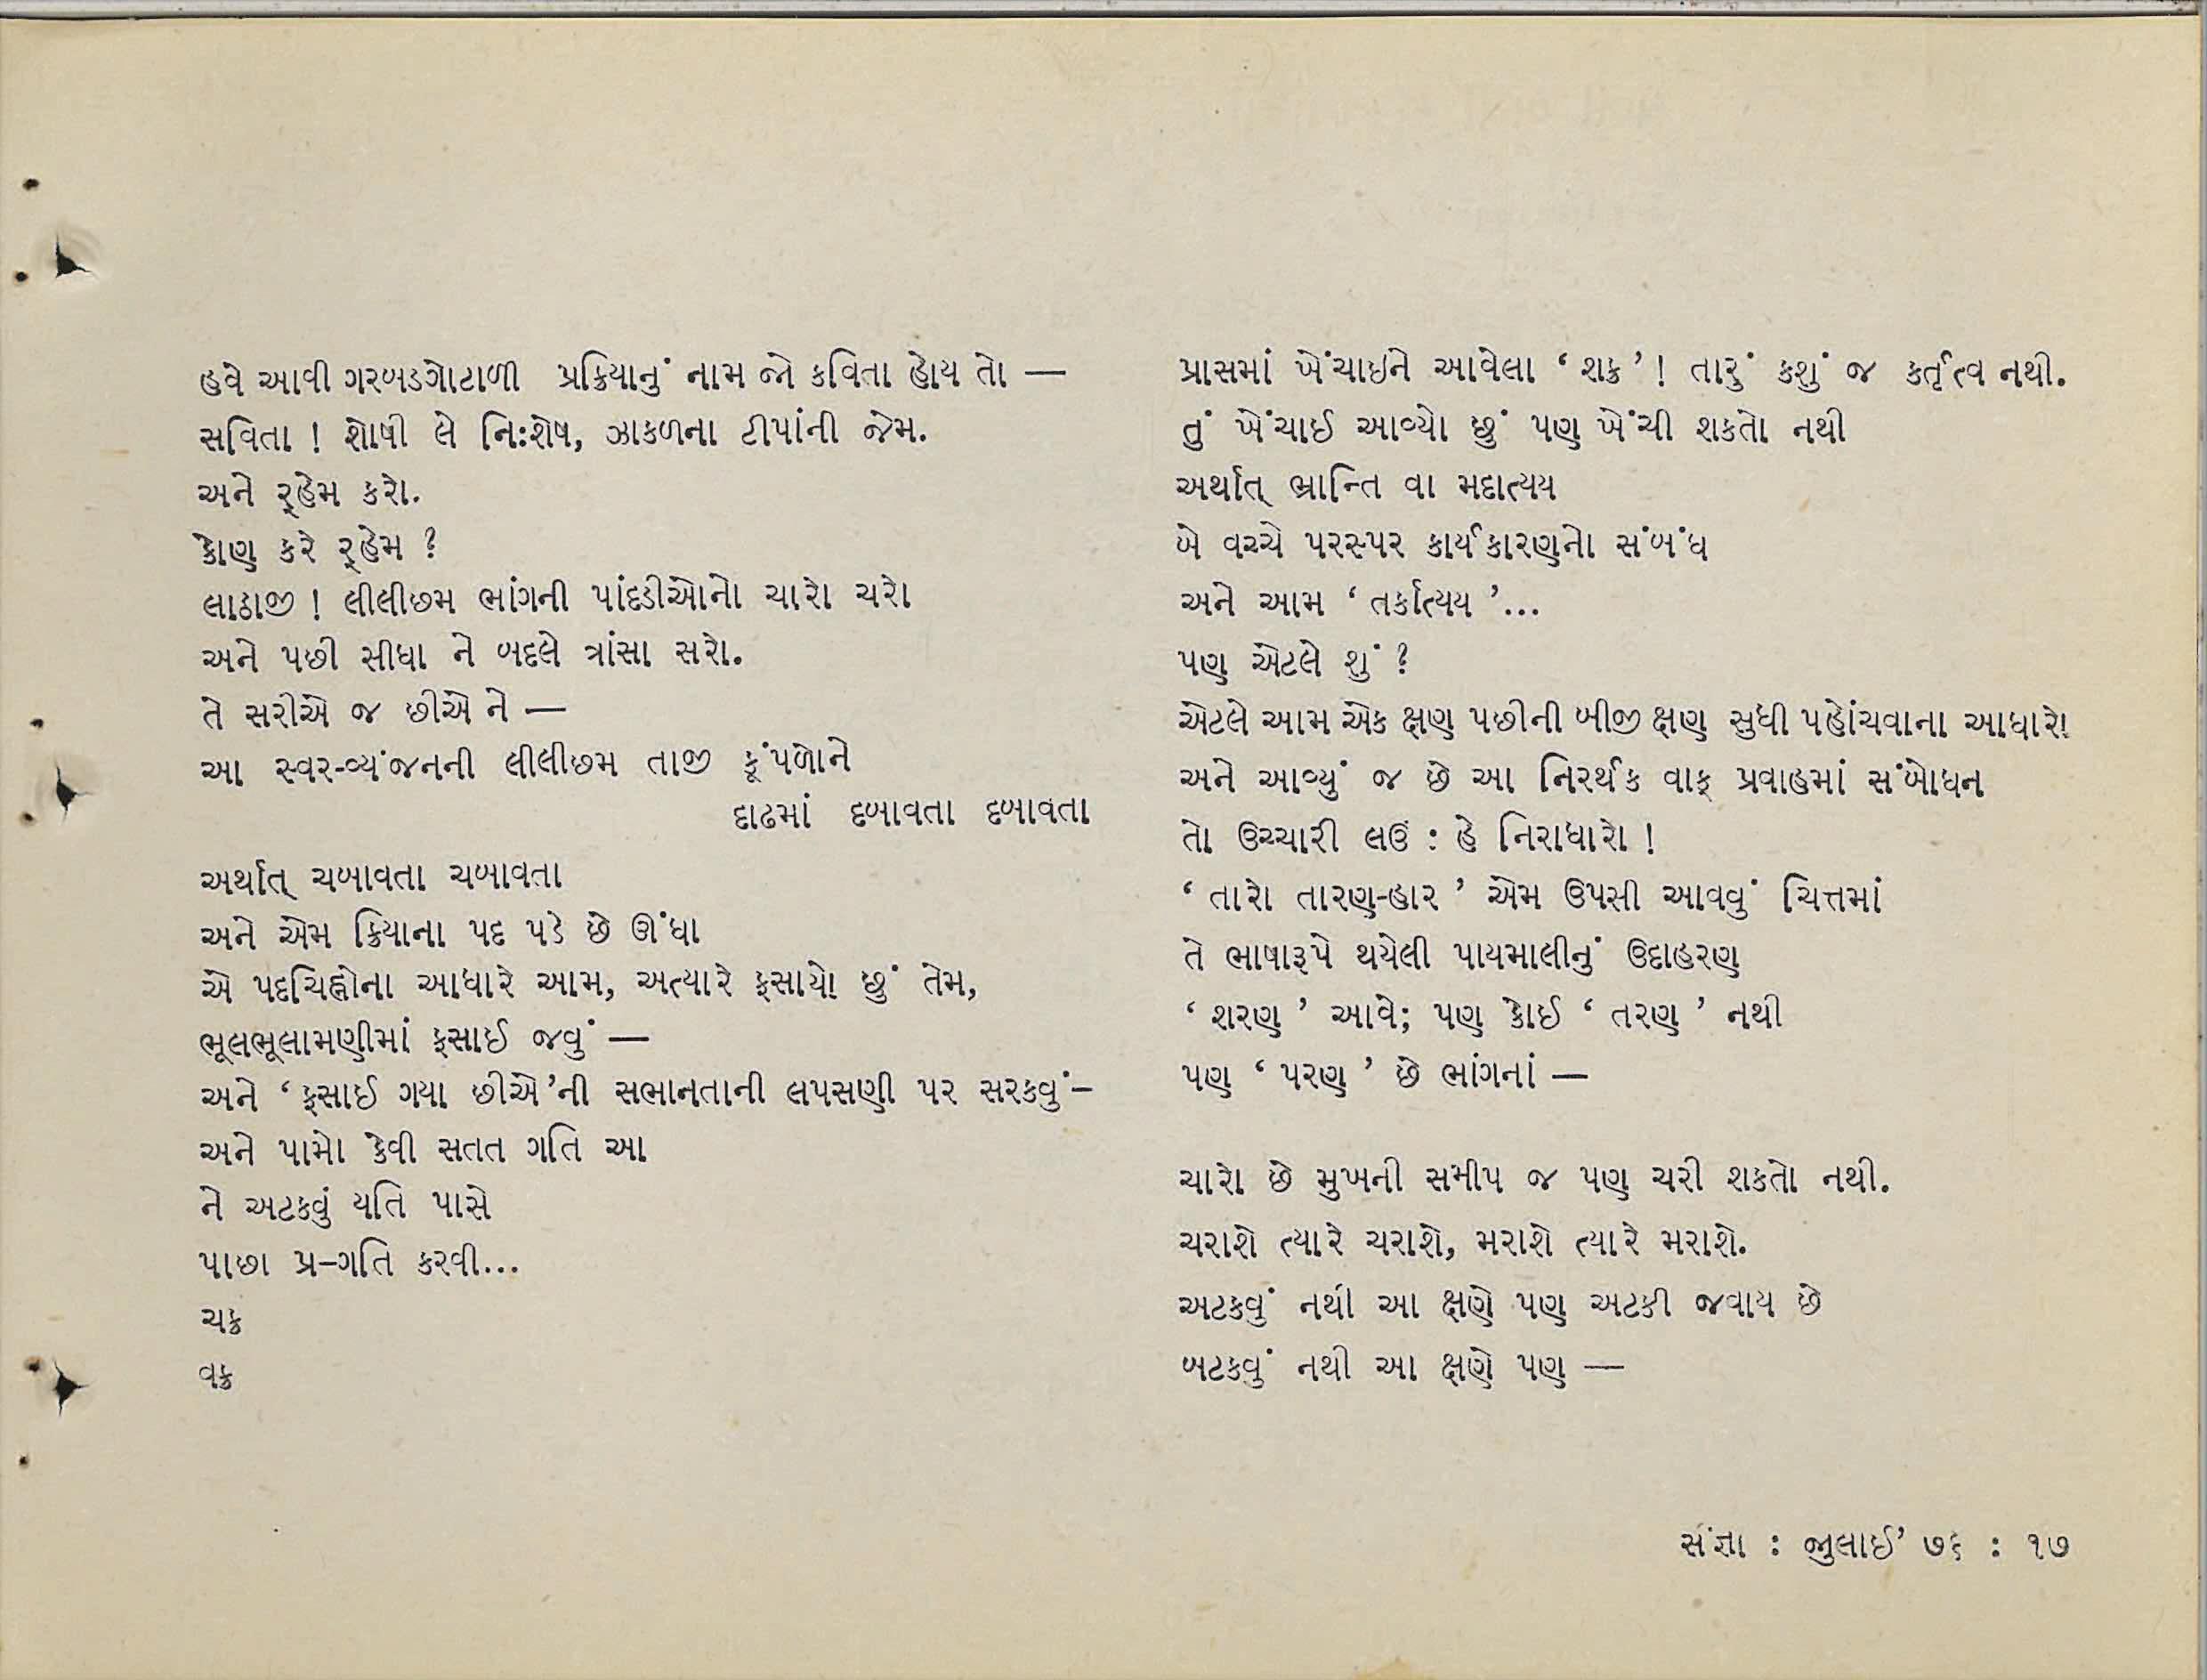 હવે આવી ગરબડગોટાળી પ્રક્રિયાનું નામ જો કવિતા હોય તો —
સવિતા ! શોષી લે નિઃશેષ, ઝાકળના ટીપાંની જેમ.
અને ર્‌હેમ કરો.
કોણ કરે ર્‌હેમ ?
લાઠાજી ! લીલીછમ ભાંગની પાંદડીઓનો ચારો ચરો
અને પછી સીધા ને બદલે ત્રાંસા સરો.
તે સરીએ જ છીએ ને —
આ સ્વર-વ્યંજનની લીલીછમ તાજી કૂંપળોને
દાઢમાં દબાવતા દબાવતા
અર્થાત્ ચબાવતા ચબાવતા
અને એમ ક્રિયાના પદ પડે છે ઊંધા
એ પદચિહ્નોના આધારે આમ, અત્યારે ફસાયો છું તેમ,
ભૂલભૂલામણીમાં ફસાઈ જવું —
અને ‘ ફસાઈ ગયા છીએ’ની સભાનતાની લપસણી પર સરકવું–
અને પામો કેવી સતત ગતિ આ
ને અટકવું યતિ પાસે
પાછા પ્ર–ગતિ કરવી...
ચક્ર
વક્ર
પ્રાસમાં ખેંચાઇને આવેલા ‘ શક્ર ’ ! તારું કશું જ કર્તૃત્વ નથી.
તું ખેંચાઈ આવ્યો છું પણ ખેંચી શકતો નથી
અર્થાત્ ભ્રાન્તિ વા મદાત્યય
બે વચ્ચે પરસ્પર કાર્યકારણનો સંબંધ
અને આમ ‘ તર્કાત્યય ’...
પણ એટલે શું ?
એટલે આમ એક ક્ષણ પછીની બીજી ક્ષણ સુધી પહોંચવાના આધારો
અને આવ્યું જ છે આ નિરર્થક વાક્ પ્રવાહમાં સંબોધન
તો ઉચ્ચારી લઉં : હે નિરાધારો !
‘ તારો તારણ-હાર ’ એમ ઉપસી આવવું ચિત્તમાં
તે ભાષારૂપે થયેલી પાયમાલીનું ઉદાહરણ
‘ શરણ ’ આવે; પણ કોઈ ‘ તરણ ’ નથી
પણ ‘ પરણ ’ છે ભાંગનાં —
ચારો છે મુખની સમીપ જ પણ ચરી શકતો નથી.
ચરાશે ત્યારે ચરાશે, મરાશે ત્યારે મરાશે.
અટકવું નથી આ ક્ષણે પણ અટકી જવાય છે
બટકવું નથી આ ક્ષણે પણ —
સંજ્ઞા : જુલાઈ’ ૭૬ : ૧૭